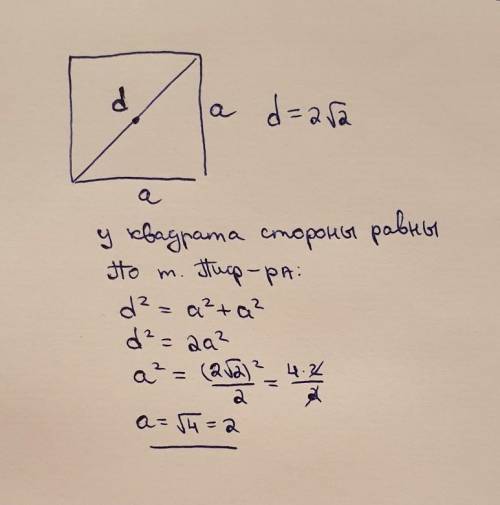 d
a d = 2√2
a
у квадрата стороны равны
По т. Пиф-ра:
d² = a² + a²
d² = 2a²
a² = (2√2)²/2 = 4·2/2
a = √4 = 2